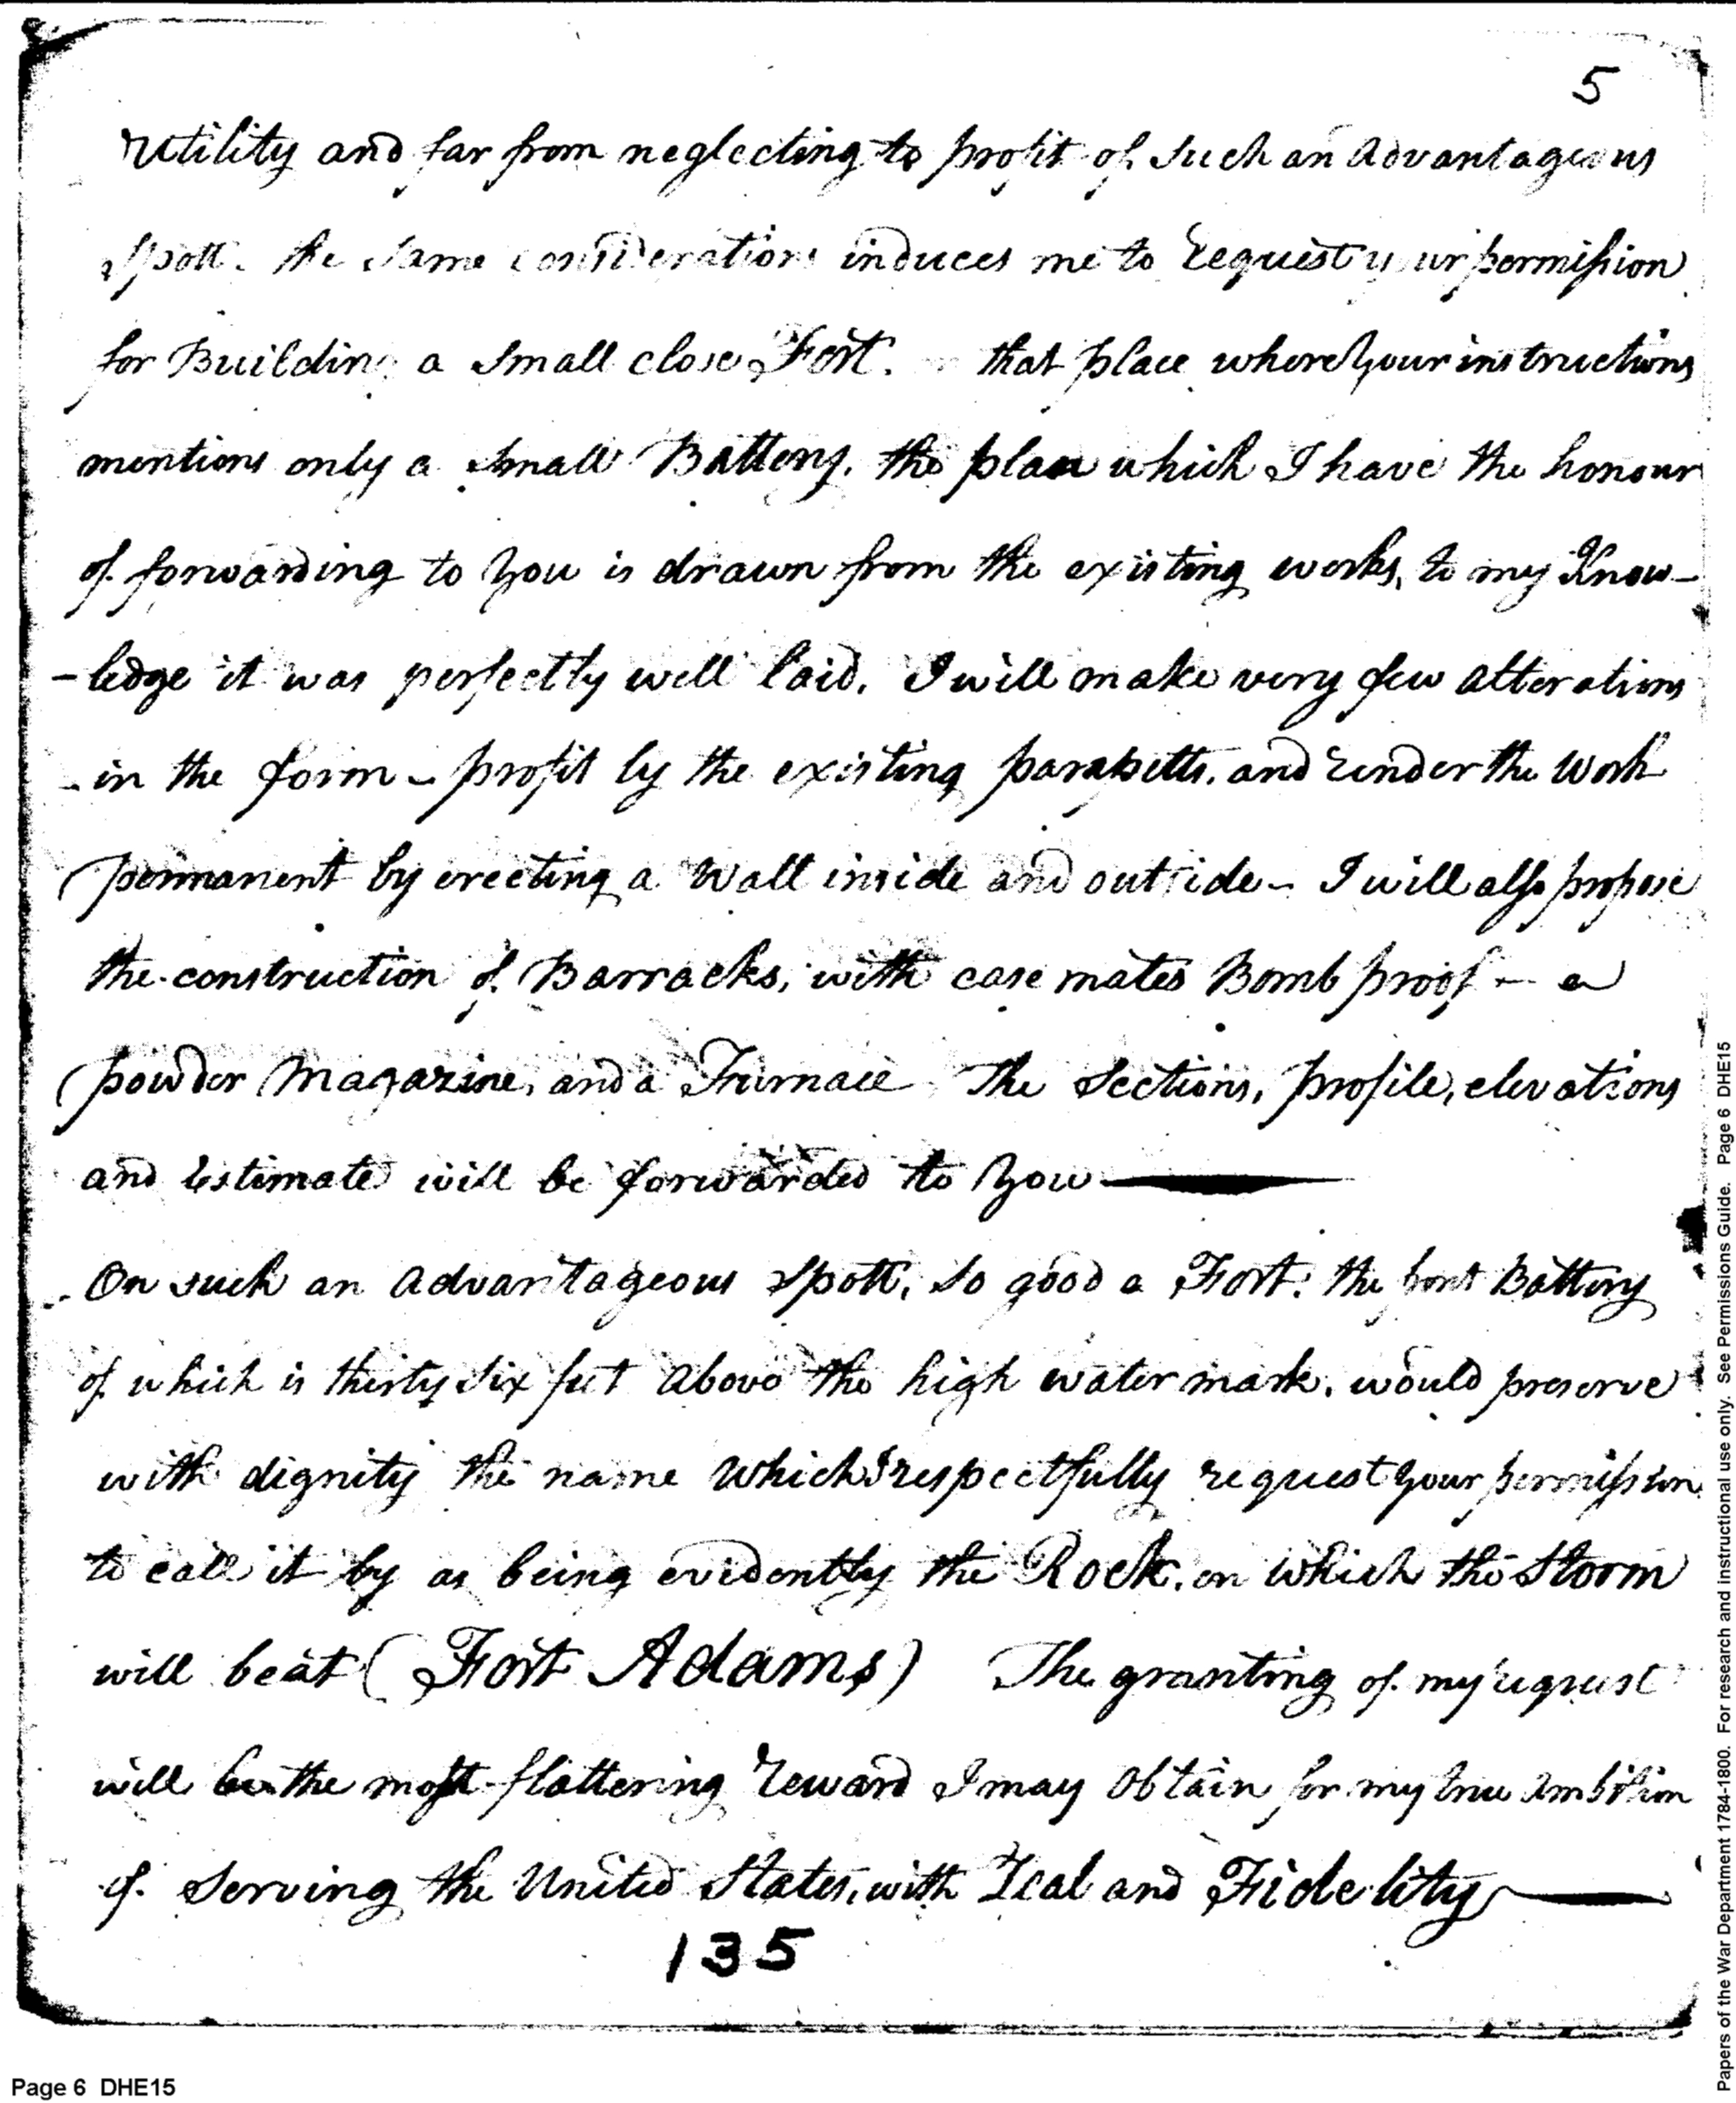 5
Utility and far from neglecting to profit of Such an Advantageous
Spott. the Same considerations induces me to request your permission
for Building a Small close Fort. that place where Your instructions
mentions only a Small Battery. the plan which I have the honour
of forwarding to You is drawn from the existing works, to my Know-
-ledge it was perfectly well laid. I will make very few alterations
in the form - profit by the existing parapetts. and render the Work
permanent by erecting a Wall inside and outside - I will also propose
the construction of Barracks, with case mates Bomb proof - a
powder Magazine, and a Furnace The Sections, profile, elevations
and Estimate will be forwarded to You
On such an advantageous Spott, So good a Fort. the front Battery
of which is thirty Six feet Above the high water mark. would preserve
with dignity the name which I respectfully request Your permission
to call it by as being evidently the Rock. on which the Storm
will beat (Fort Adams) The granting of my request
will be the most flattering Reward I may Obtain for my true Ambition
of Serving the United States, with Zeal and Fidelity
135
Page 6 DHE15
Papers of the War Department 1784-1800. For research and instructional use only. See Permissions Guide. Page 6 DHE15